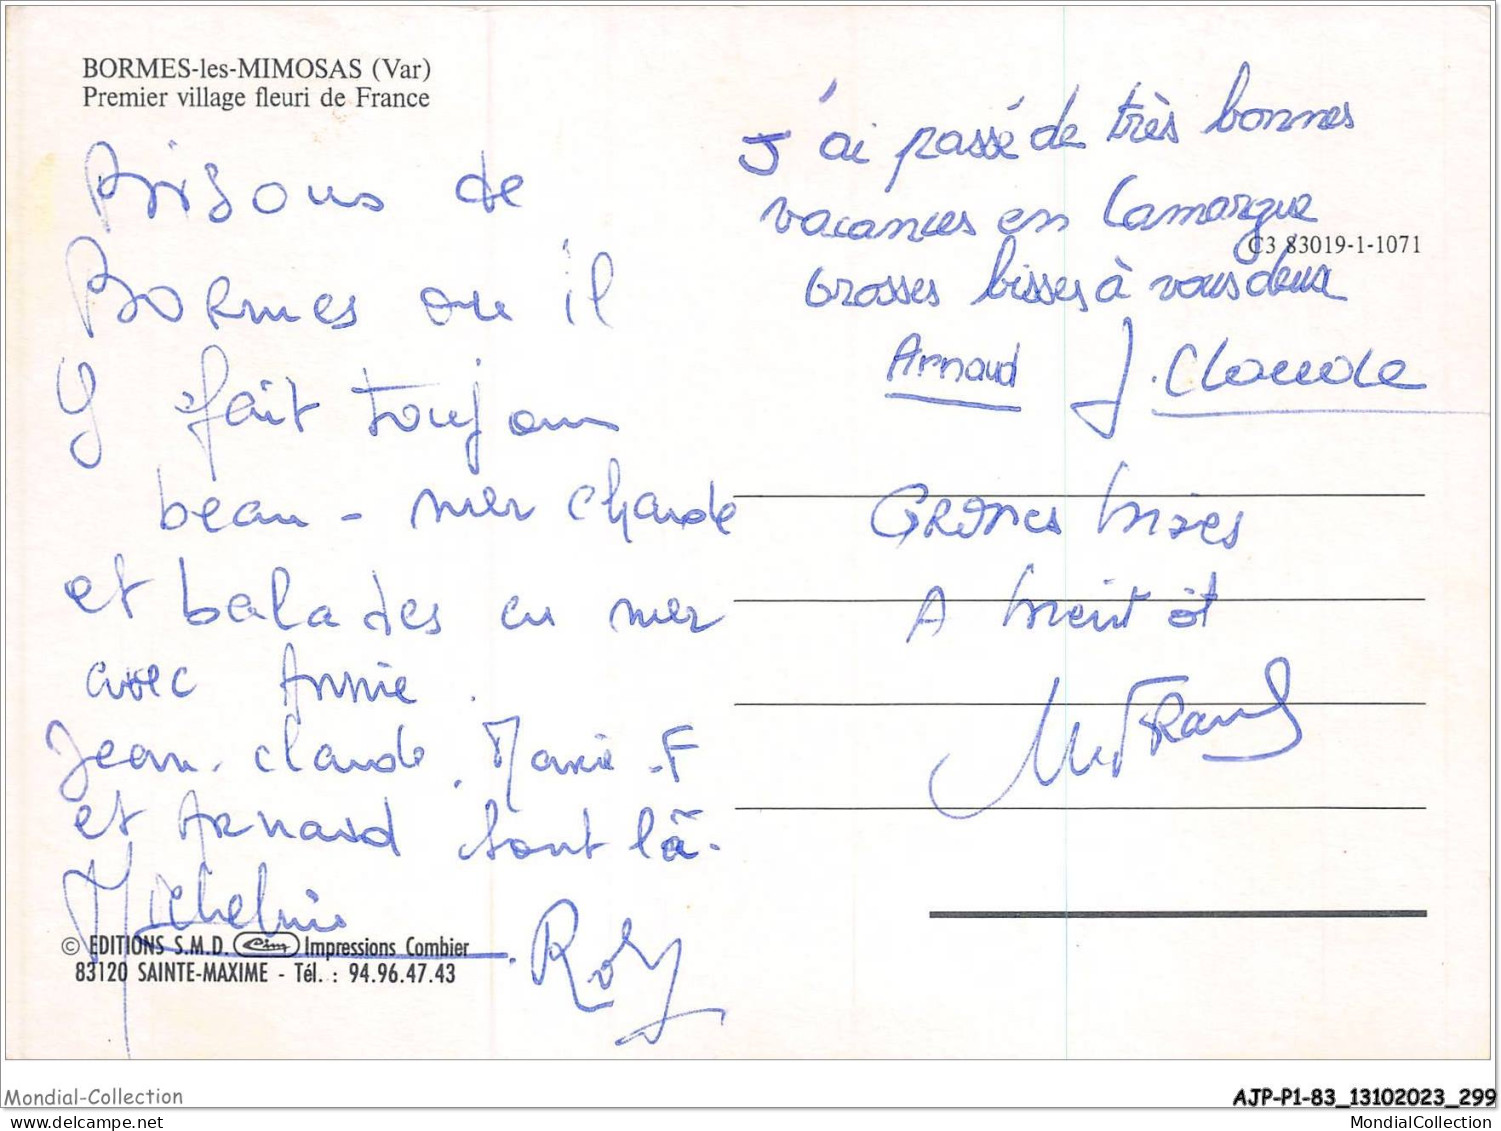 BORMES-les-MIMOSAS (Var)
Premier village fleuri de France
Bisous de
Bormes ou il
y fait toujours
beau - mer chaude
et balades en mer
avec Annie.
Jean-claude. Marie-F
et Arnaud sont là.
Micheline
Roby
© EDITIONS S.M.D. Cim Impressions Combier
83120 SAINTE-MAXIME - Tél. : 94.96.47.43
J'ai passé de très bonnes
vacances en Camargue
C3 83019-1-1071
Grosses bisses à vous deux
Arnaud J. Claude
GRosses bises
A bientôt
Mondial-Collection
mondial-collection
AJP-P1-83_13102023_299
MondialCollection